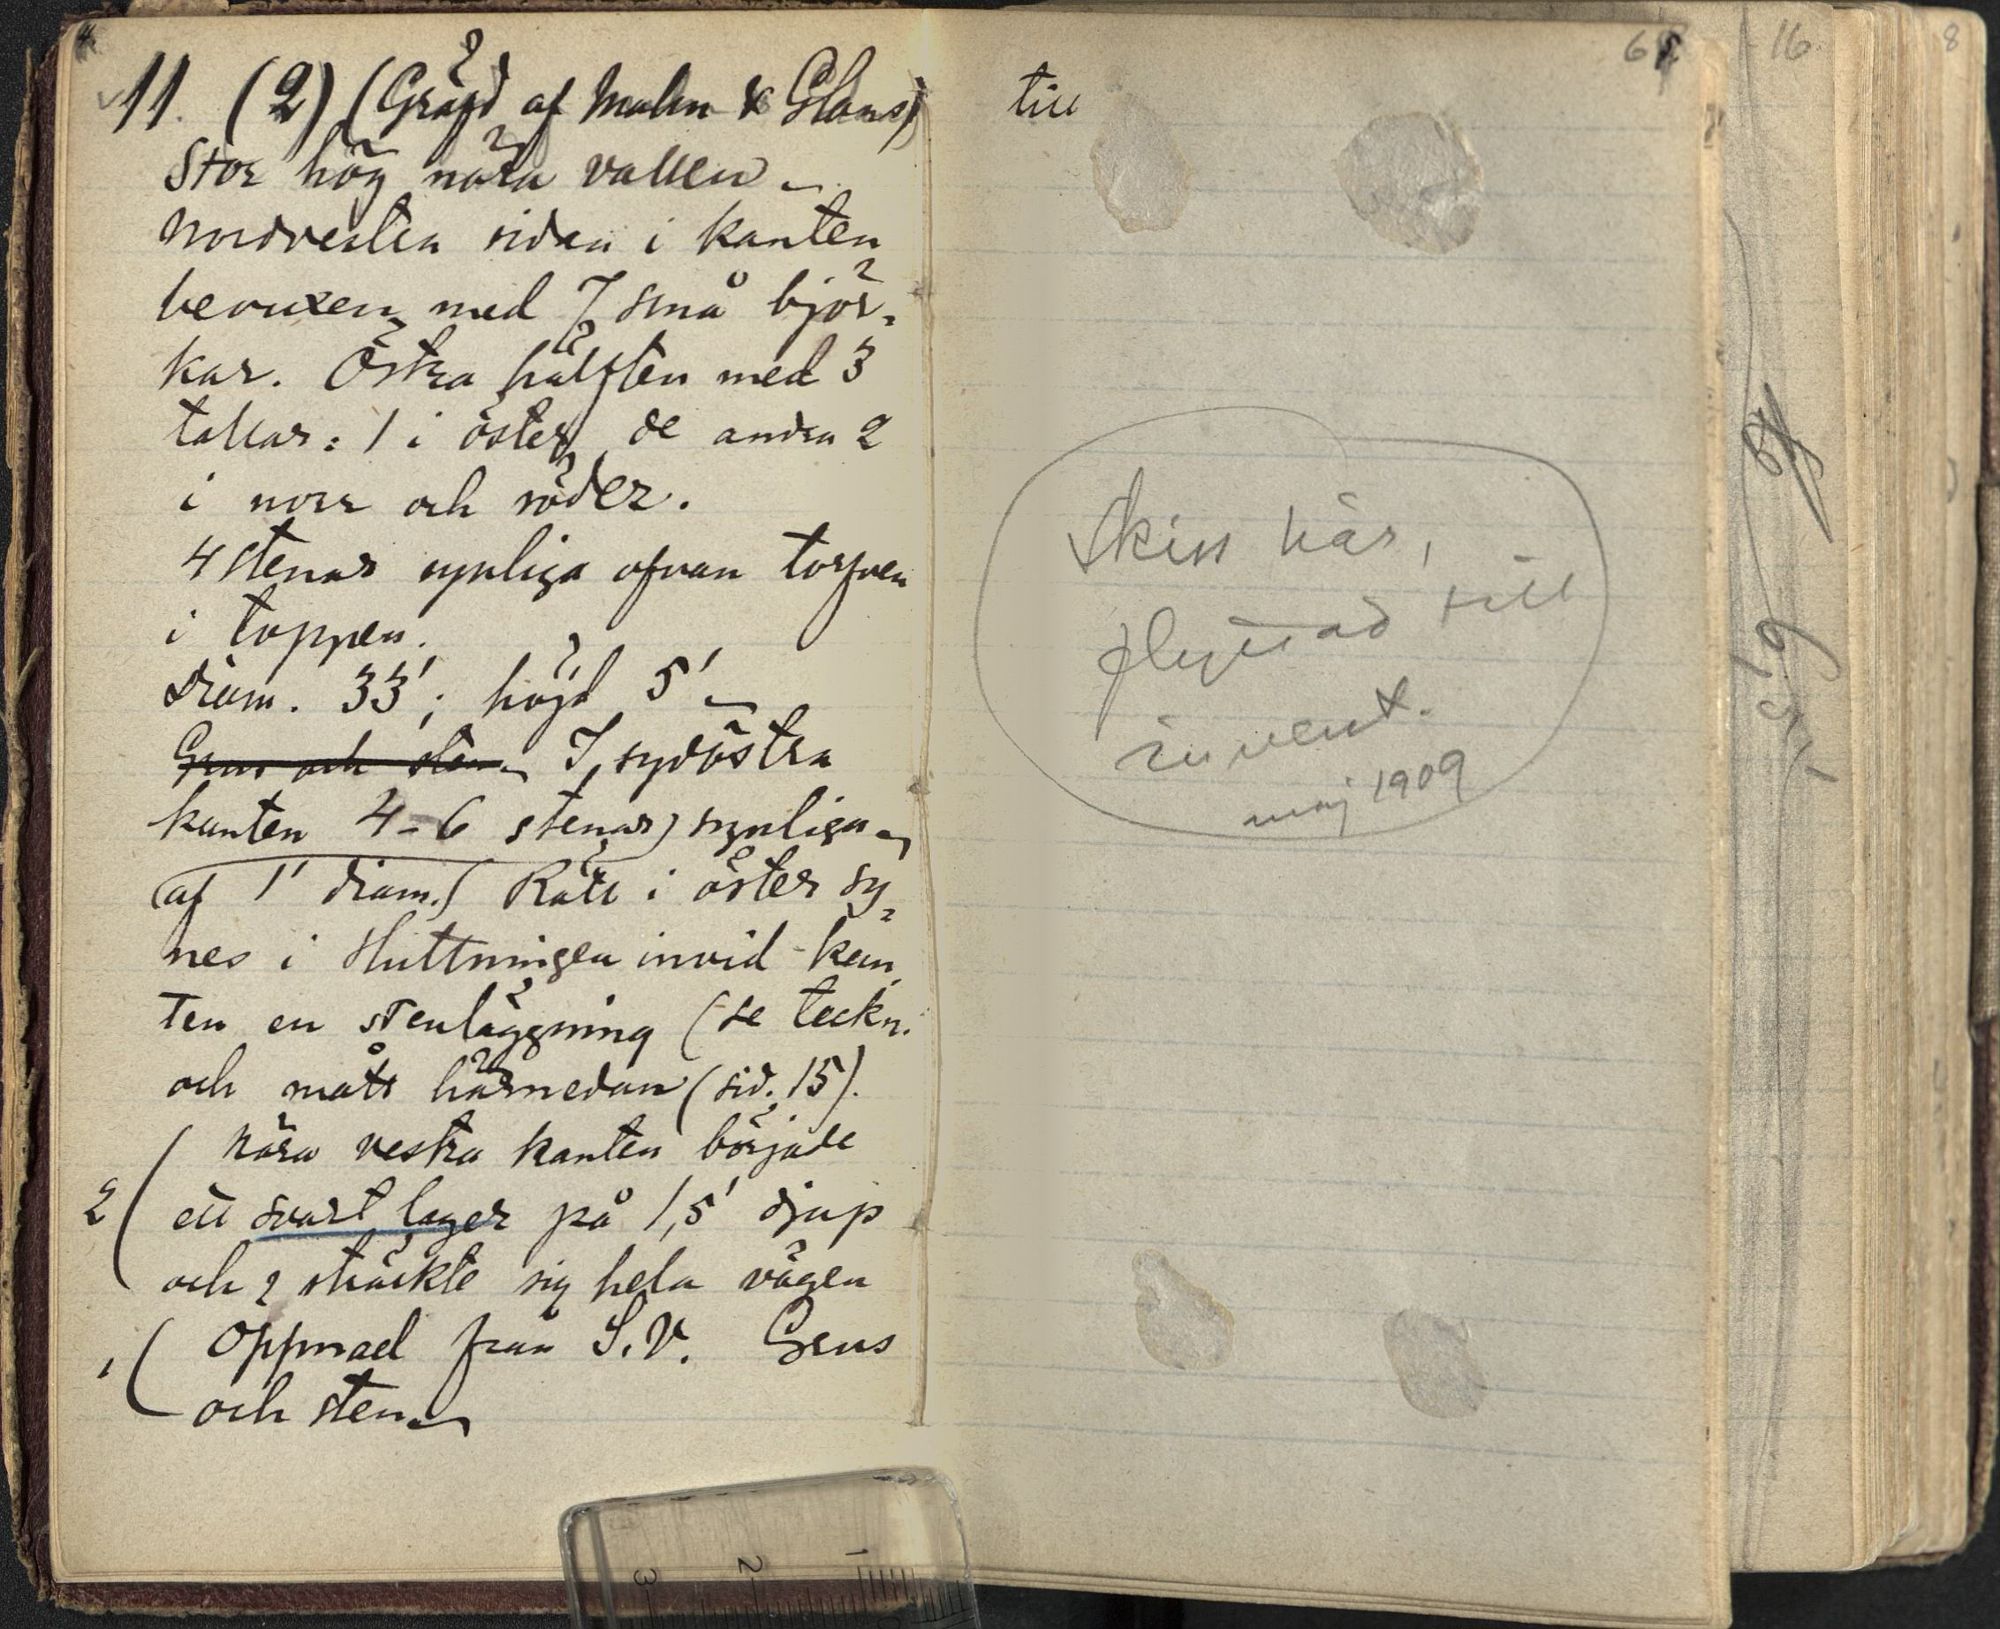 11. (2) (Gräfd af Malm & Glans)
Stor hög nära vallen
Nordvestra sidan i kanten
bevuxen med 7 små björ-
kar. Östra hälften med 3
tallar: 1 i öster, de andra 2
i norr och söder.
4 stenar synliga ofvan torfven
i toppen.
Diam. 33'; höjd 5'
Grus och sten I sydöstra
kanten 4-6 stenar synliga
(af 1' diam.) Rätt i öster sy-
nes i sluttningen invid kan-
ten en stenläggning (se teckn.
och mått härnedan (sid. 15).
Nära vestra kanten började
2 ett svart lager på 1,5' djup
och sträckte sig hela vägen
1 Öppnad från S.V. Grus
och sten
till
6
Skiss här,
flyttad till
invent.
maj 1909
16
8